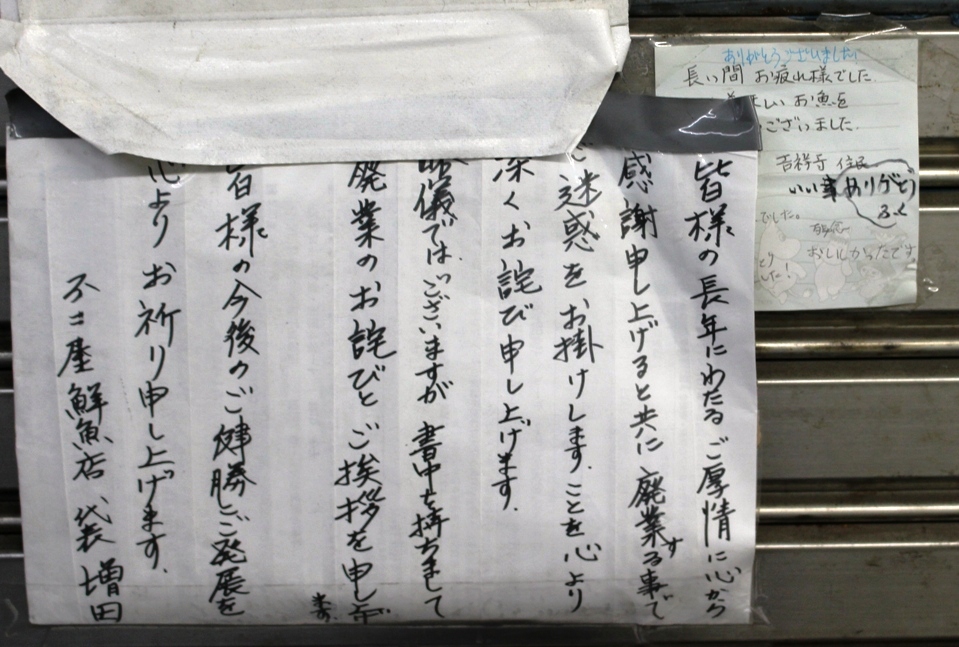 皆様の長年にわたるご厚情に心から
感謝申し上げると共に廃業する事で
ご迷惑をお掛けします.ことを心より
深くお詫び申し上げます.
略儀ではございますが書中を持ちまして
廃業のお詫びとご挨拶を申し上げます.
皆様の今後のご健勝とご発展を
心よりお祈り申し上げます.
不二屋鮮魚店代表増田
ありがとうございました
長い間 お疲れ様でした.
しい お魚を
ございました.
吉祥寺 住民
いい事ありがとう
でした。
おいしかったです
した!